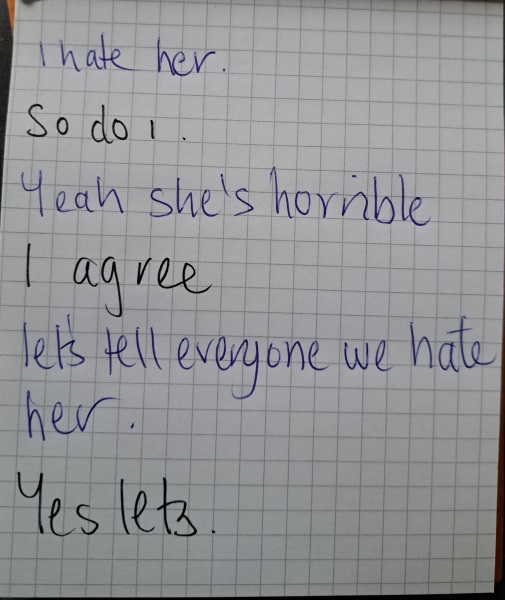 I hate her.
So do I.
Yeah she's horrible
I agree
let's tell everyone we hate
her.
Yes lets.